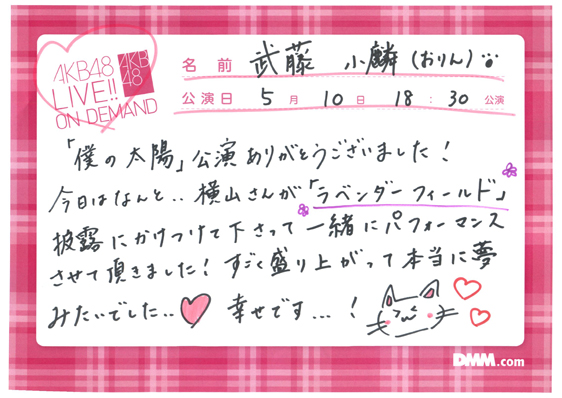 AKB48
LIVE!!
ON DEMAND
AKB
48
名前 武藤 小麟(おりん)
公演日 5月10日 18:30公演
「僕の太陽」公演ありがとうございました!
今日はなんと‥横山さんが「ラベンダーフィールド」
披露にかけつけて下さって一緒にパフォーマンス
させて頂きました!すごく盛り上がって本当に夢
みたいでした‥ 幸せです…!
DMM.com